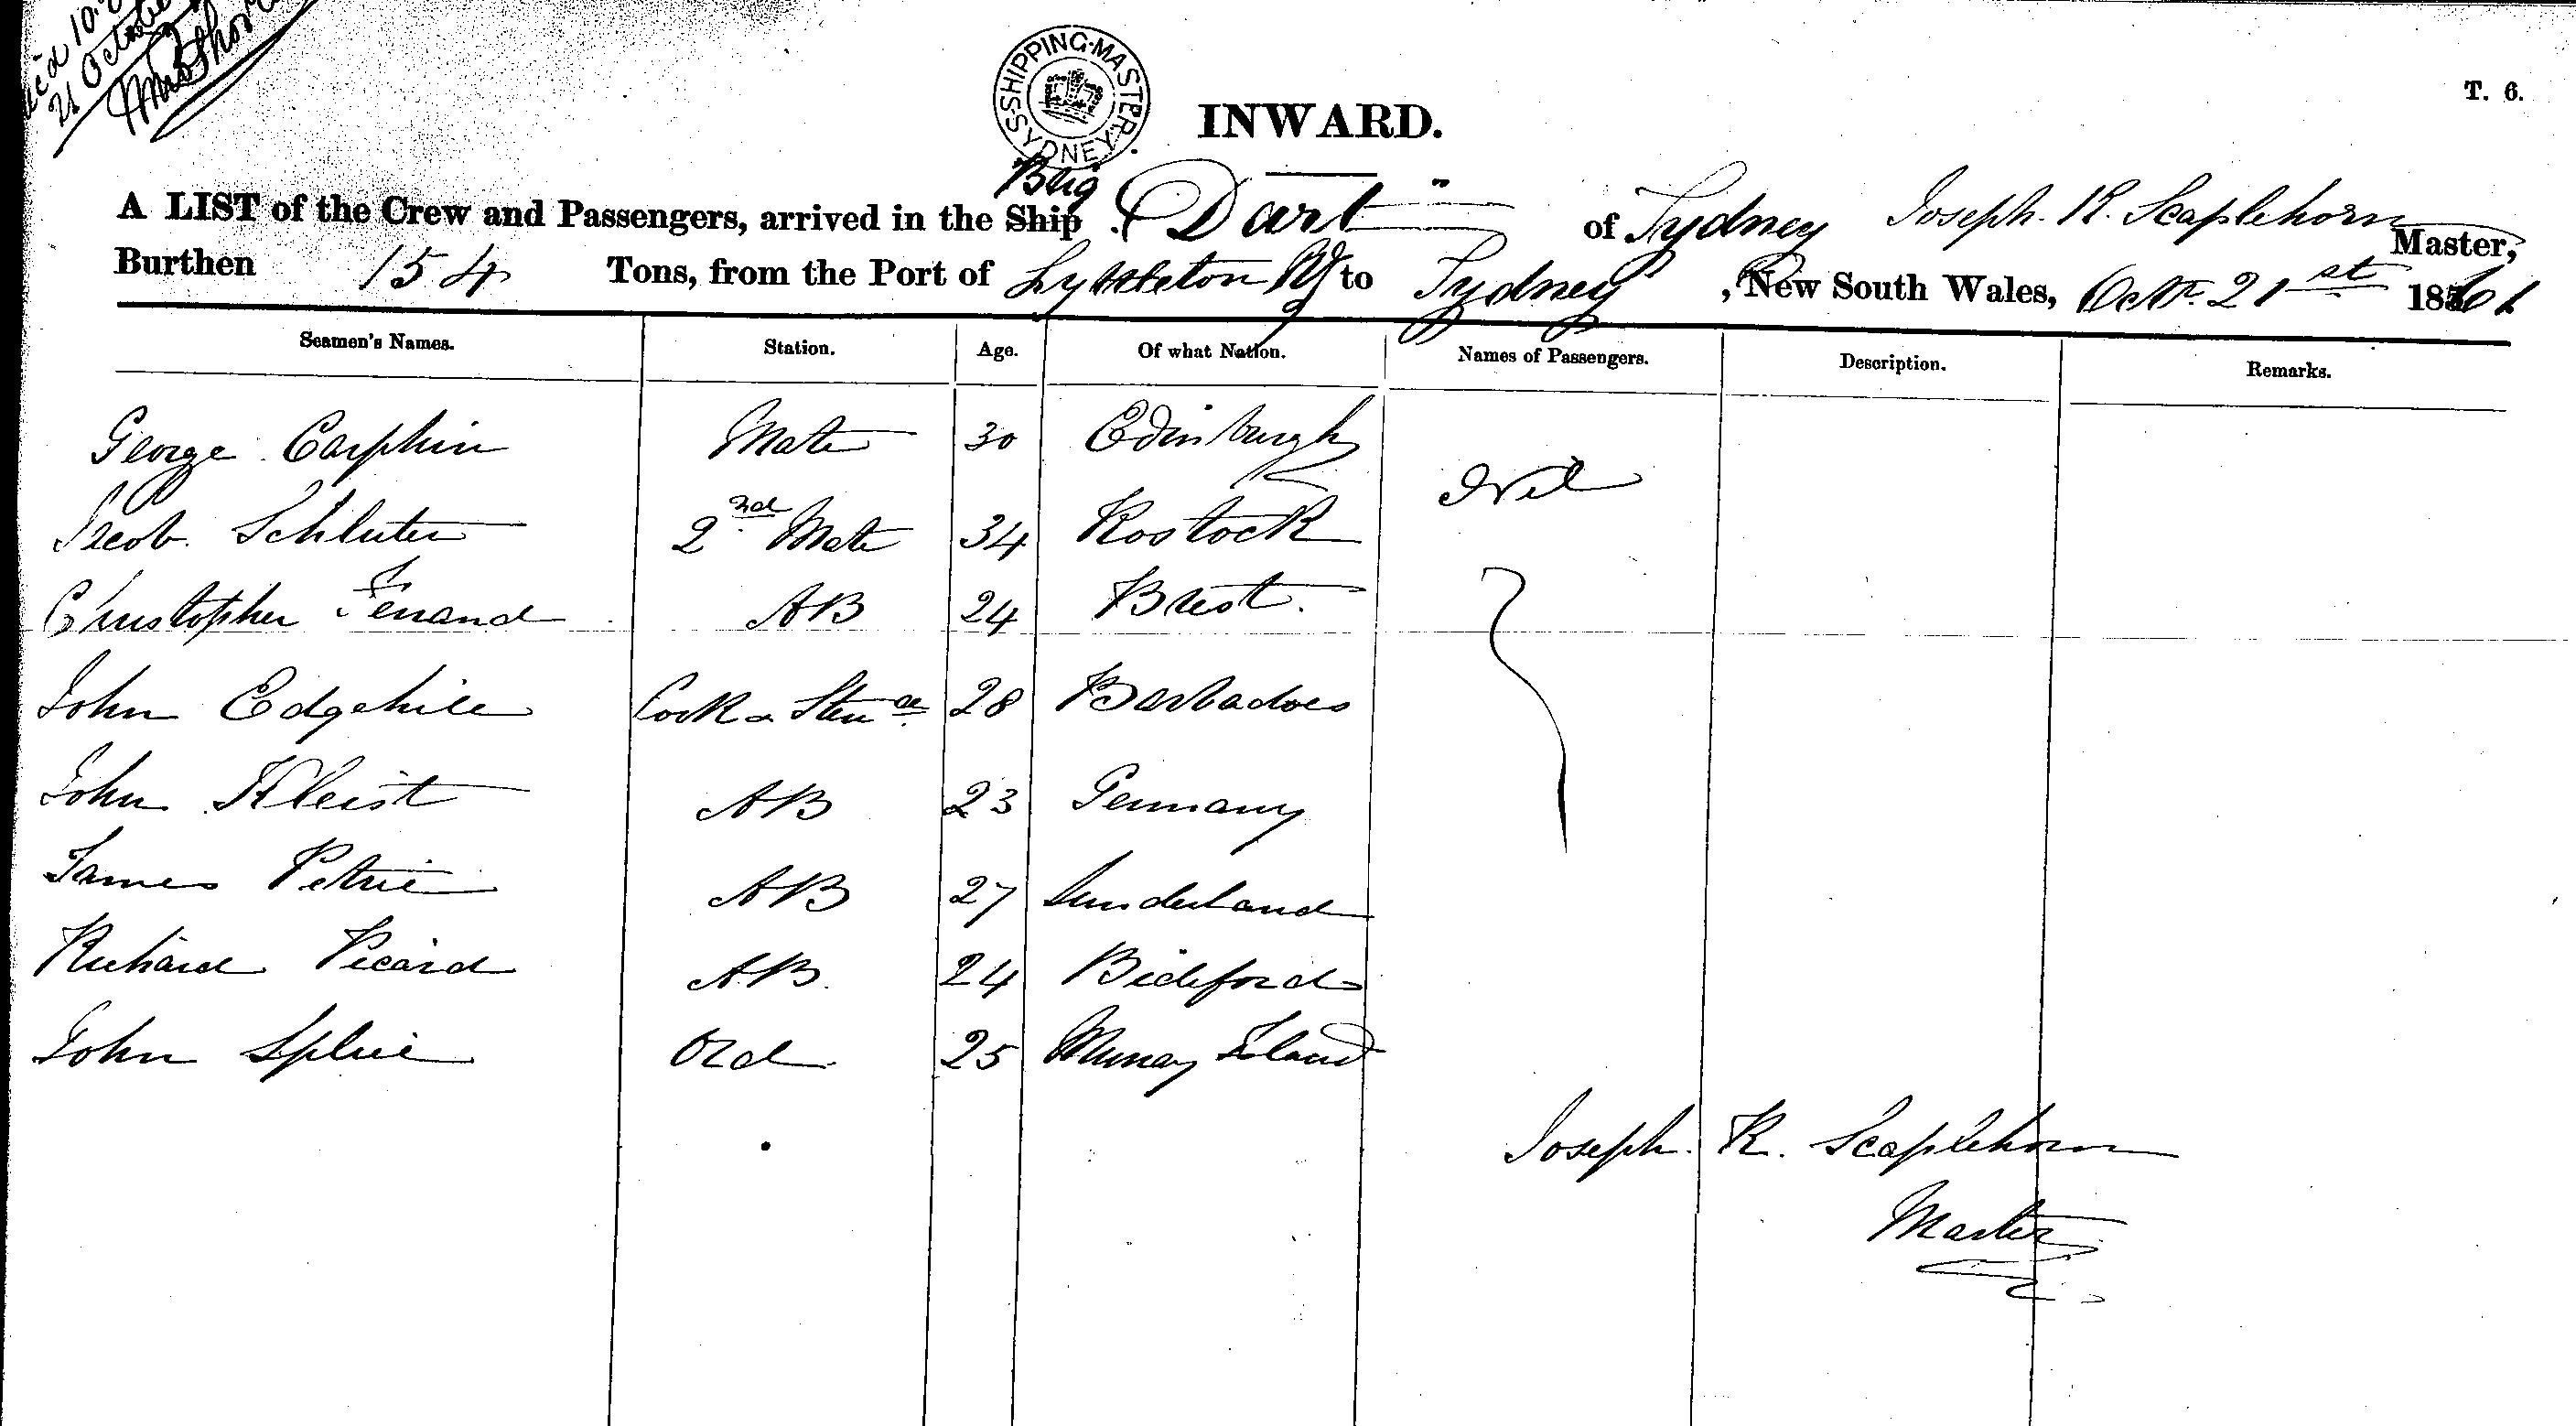 21 October
SHIPPING·MASTER·SYDNEY·
T. 6.
INWARD.
Brig
A LIST of the Crew and Passengers, arrived in the Ship Dart " of Sydney Joseph. R. Scaplehorn Master,
Burthen 154 Tons, from the Port of Lyttleton NZ to Sydney, New South Wales, Octr. 21st 1861
Seamen's Names. Station. Age. Of what Nation. Names of Passengers. Description. Remarks.
George Carphin Mate 30 Edinburgh
Nil
Jacob. Schluter 2nd Mate 34 Rostock
Christopher Ferrand AB 24 Brest.
John Edgehill Cook & Stewd 28 Barbadoes
John Kleist AB 23 Germany
James Petrie AB 27 Sunderland
Richard Picard AB. 24 Bideford
John Ord 25 Murray Island
Joseph. R. Scaplehorn
Master